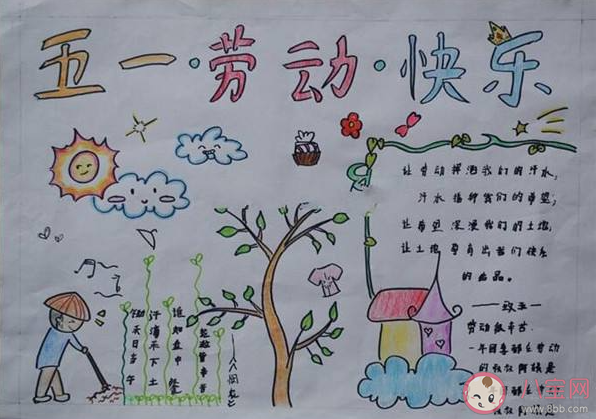 五一·劳动·快乐
让劳动挥洒我们的汗水，
汗水播种我们的希望；
让希望浸我们的土地，
让土地孕育出我们快乐
的出品。
——致五一
劳动最辛苦.
一年四季都在劳动
的叔叔阿姨是
都
叔叔阿
锄禾日当午
汗滴禾下土
谁知盘中餐
粒粒皆辛苦
八宝网
www.8bb.com